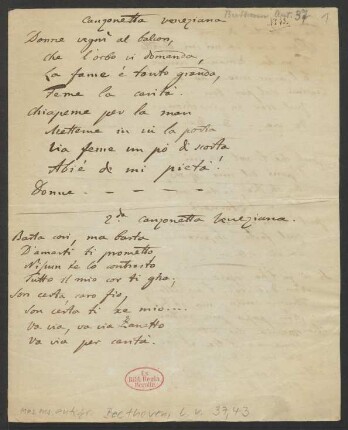 Canzonetta veneziana
37
1
Donne vegni al balcon,
che l'orbo vi domanda,
La fame è tanto granda,
Feme la carità.
Chiapeme per la man
Metteme in su la porta
Via feme un pò de scorta
Abié de mi pietà!
Donne - - - -
2da canzonetta Veneziana.
Basta così, ma basta
D'amarti ti prometto
Nissun te lo contrasta
Tutto il mio cor ti gha,
Son certa, caro fio,
Son certa ti xe mio....
Va via, va via Zanetto
Va via per carità.
Ex
Bibl. Regia
Berolin.
mus. ms. autogr. Beethoven, L. v. 37,43